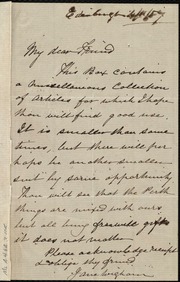 Edinburgh
My dear Friend
This Box contains
a Miscellaneous Collection
of Articles for which I hope
thou will find good use.
It is smaller than some
times, but there will per
haps be another smaller
sent by same opportunity
Thou will see that the Perth
things are mixed with ours
but all being freewill gifts
it does not matter.
Please acknowledge receipt
& oblige thy friend
Jane Wigham